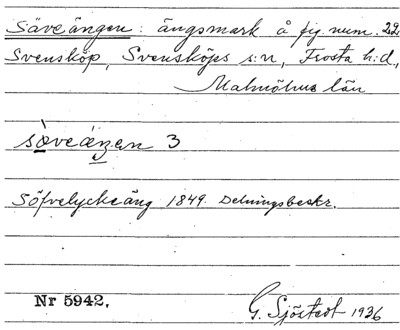 Säveängen: ängsmark å fig. num. 29,
Svensköp, Svensköps s:n, Frosta h:d,
Malmöhus län
sòveäŋen 3
Söfvelyckeäng 1849. Delningsbeskr.
Nr 5942.
G. Sjöstedt 1936